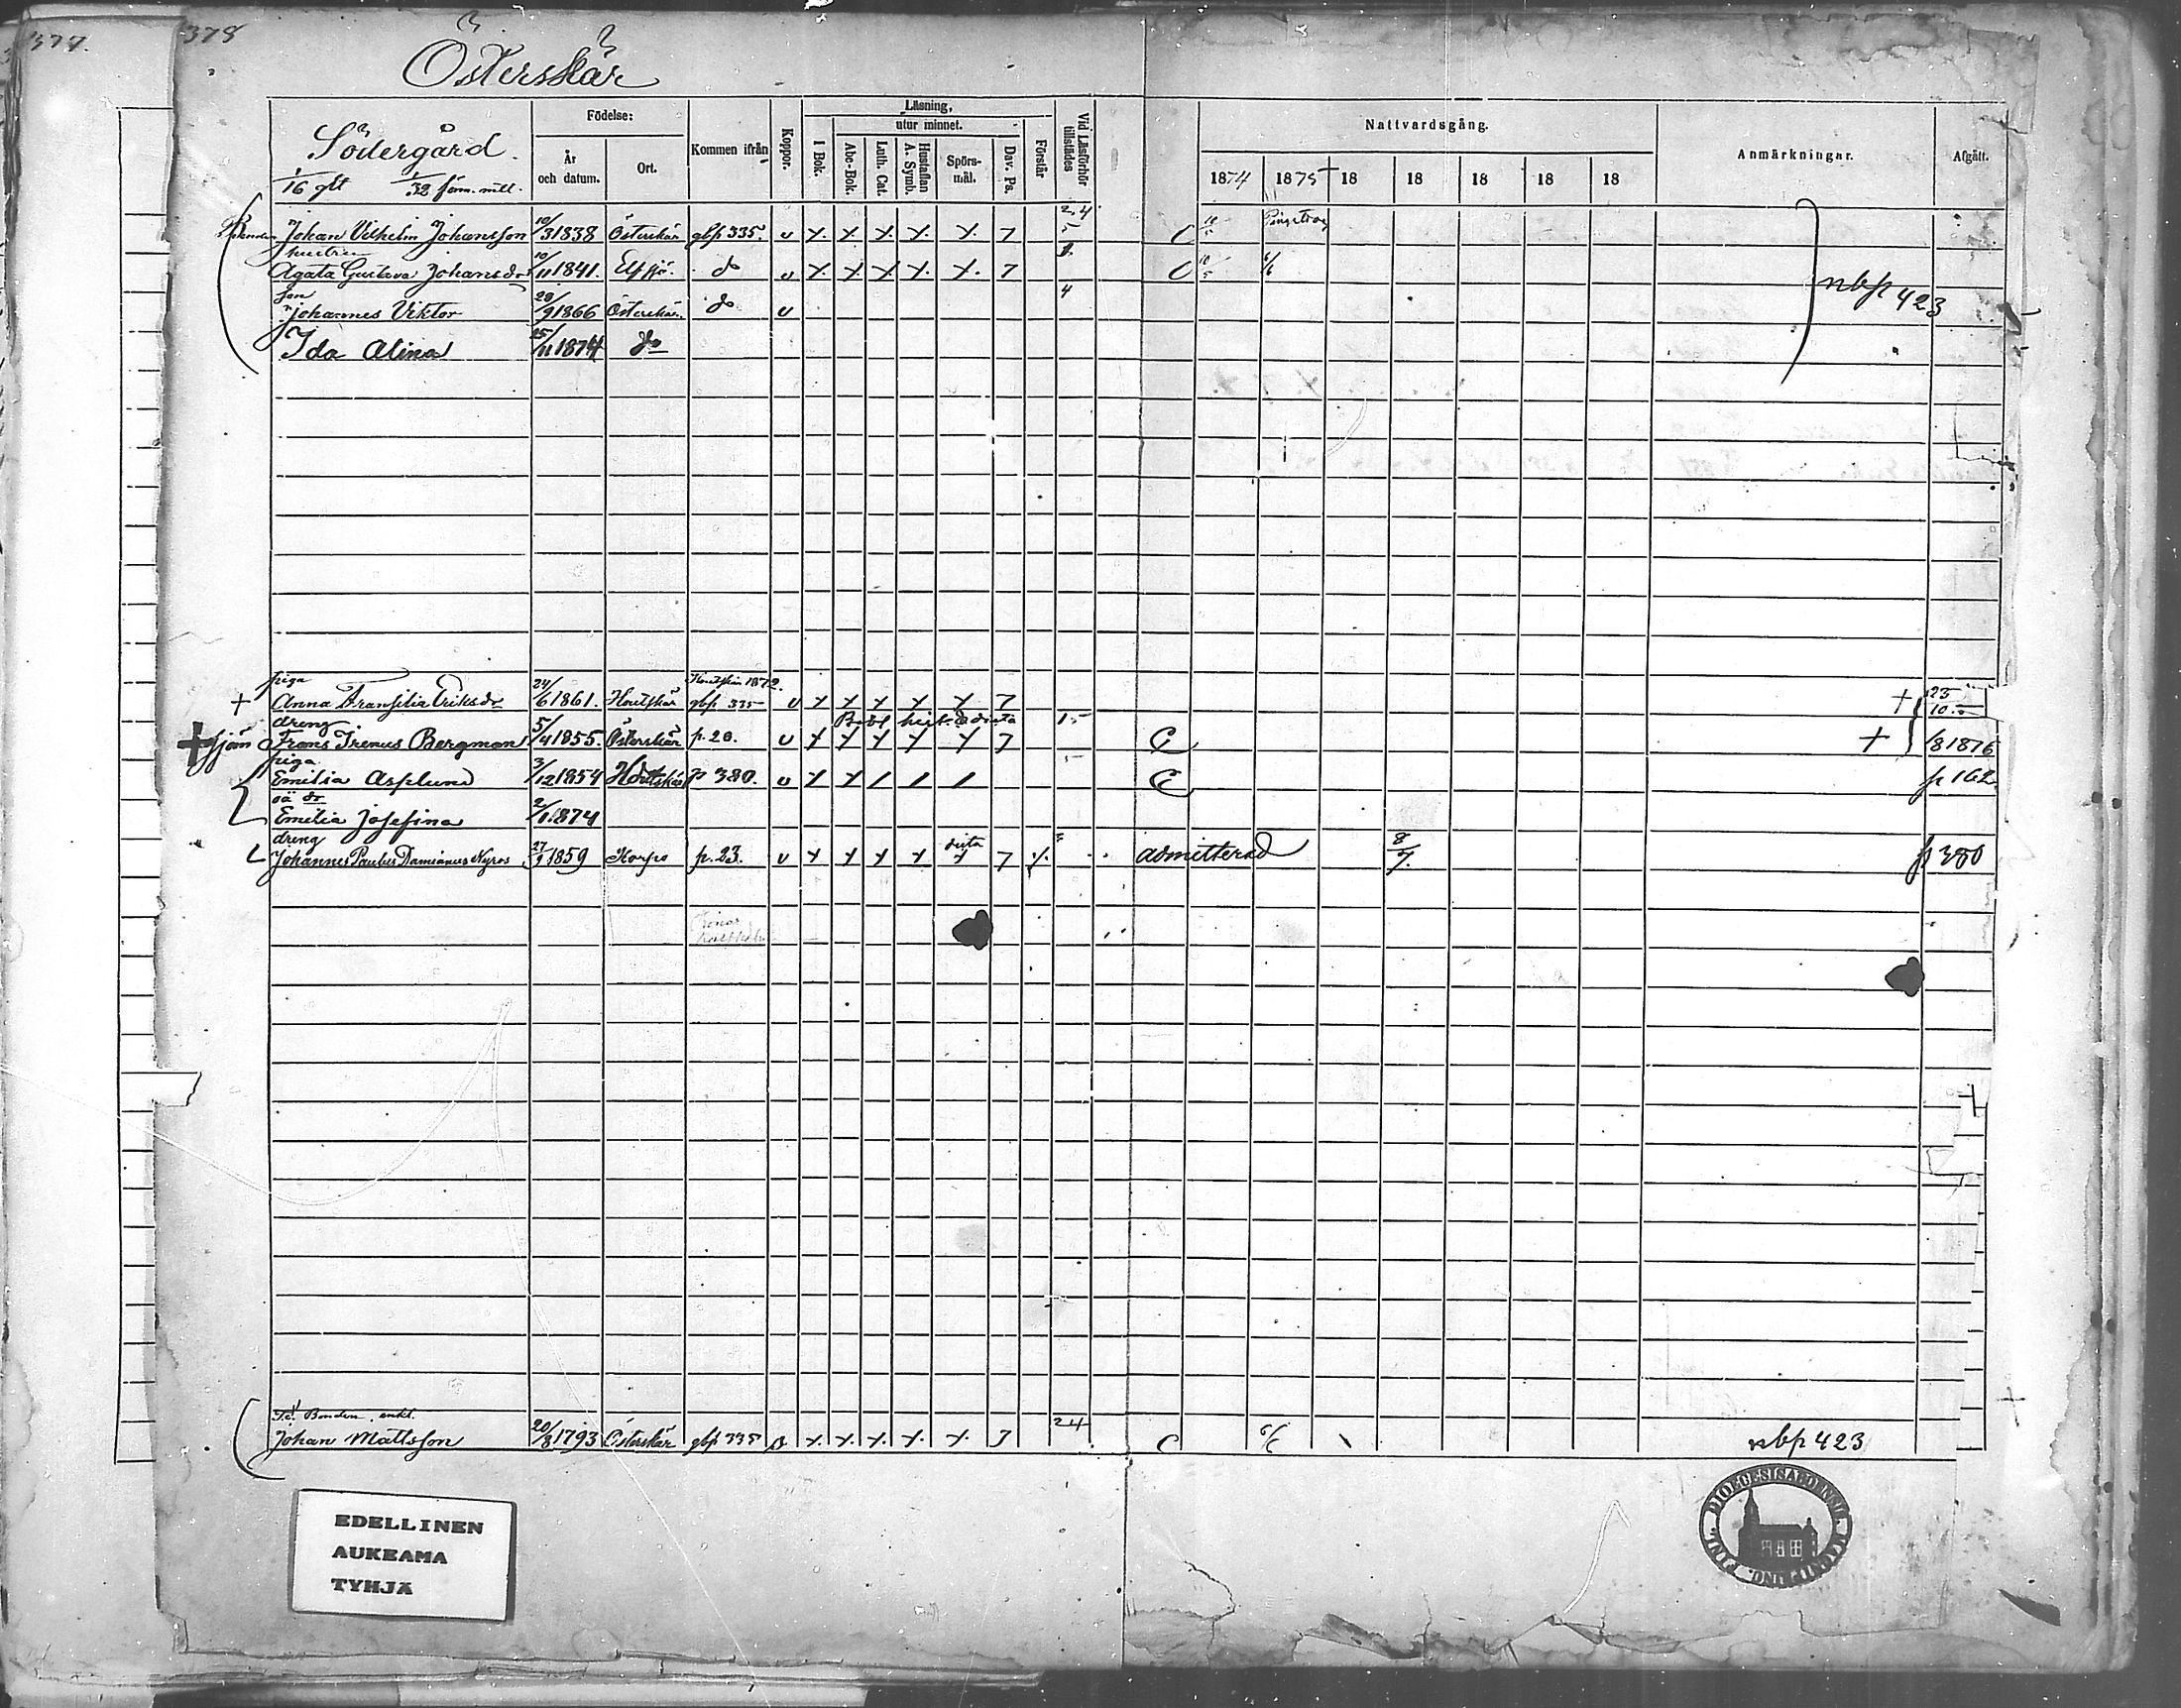 377.
378
Österskär
Södergård.
1/16 mtl 1/32 förm. mtl.
Födelse:
År och datum.
Ort.
Kommen ifrån
Koppor.
Läsning,
utur minnet.
I Bok.
Abc-Bok.
Luth. Cat.
Hustaflan A. Symb.
Spörs-mål.
Dav. Ps.
Förstår
Vid Läsförhör tillstädes
Nattvardsgång.
1874 1875 18 18 18 18 18
Anmärkningar.
Afgått.
Bonden Johan Vilhelm Johansson 10/3 1838 Österskär gbp 335. v x x x x x 7 C Pingstdag
hustru
Agata Gustava Johansdr 10/11 1841. do v x x x x x 7 C 6/6
son
Johannes Viktor 28/9 1866 Österskär do v
Ida Alina 25/11 1874 do
nbp 423
piga Houtskär 1872.
+ Anna Fransilia Eriksdr 24/6 1861. Houtskär gbp 335 v x x x x x 7 + 23/10
dreng Bibl. hist.
Frans Irenus Bergman 5/4 1855. Österskär p. 20. v x x x x x 7 C + 1876
piga
Emilia Asplund 3/12 1854 Houtskär p 380. v x x / / / C p 162
oä dr
Emilia Josefina 2/1 1874
dreng
Johannes Paulus Damianus Nyroos 27/9 1859 Korpo p. 23. v x x x x x 7 admitterad 8/7. p 380
Bonden, enkl. 24
Johan Mattsson 20/8 1793 Österskär gbp 335 x x x x x 7 C 6/6 nbp 423
EDELLINEN
AUKEAMA
TYHJÄ